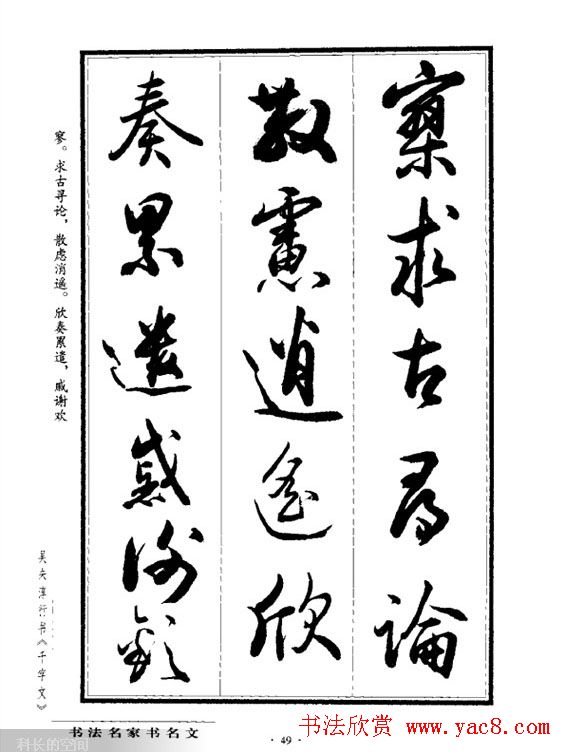 寥求古尋論
散慮逍遥欣
奏累遣慼謝歡
寥。求古寻论，散虑消遥。欣奏累遣，戚谢欢
吴淳行书《千字文》
书法名家书名文
· 49 ·
书法欣赏 www.yac8.com
科长的空间